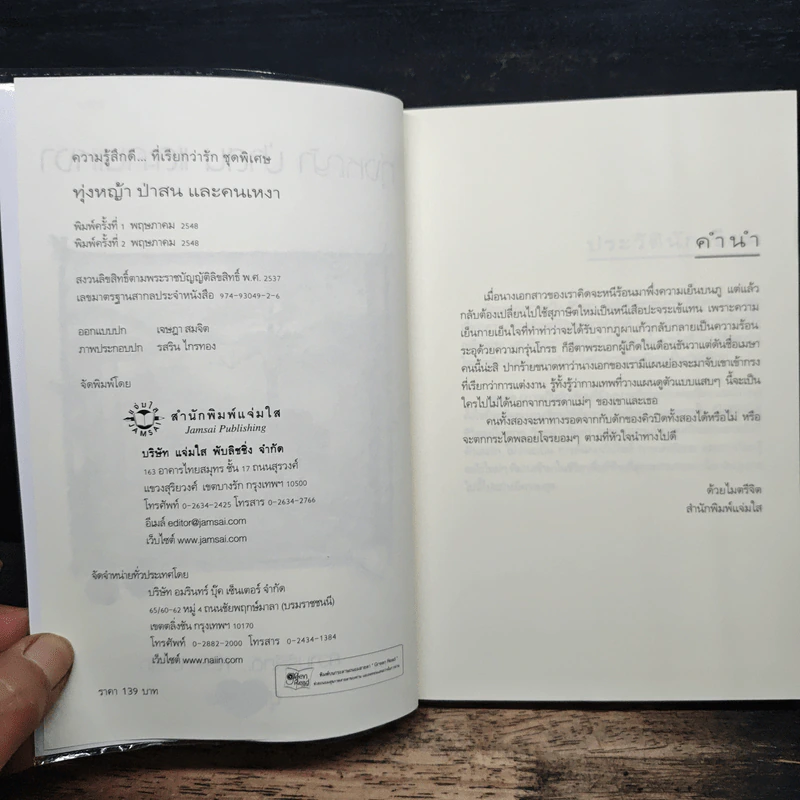 ความรู้สึกดี... ที่เรียกว่ารัก ชุดพิเศษ
ทุ่งหญ้า ป่าสน และคนเหงา
พิมพ์ครั้งที่ 1 พฤษภาคม 2548
พิมพ์ครั้งที่ 2 พฤษภาคม 2548
สงวนลิขสิทธิ์ตามพระราชบัญญัติลิขสิทธิ์ พ.ศ. 2537
เลขมาตรฐานสากลประจำหนังสือ 974-93049-2-6
ออกแบบปก เจษฎา สมจิต
ภาพประกอบปก รสริน ไกรทอง
จัดพิมพ์โดย
แจ่มใส
JAMSAI
สำนักพิมพ์แจ่มใส
Jamsai Publishing
บริษัท แจ่มใส พับลิชชิ่ง จำกัด
163 อาคารไทยสมุทร ชั้น 17 ถนนสุรวงศ์
แขวงสุริยวงศ์ เขตบางรัก กรุงเทพฯ 10500
โทรศัพท์ 0-2634-2425 โทรสาร 0-2634-2766
อีเมล์ editor@jamsai.com
เว็บไซต์ www.jamsai.com
จัดจำหน่ายทั่วประเทศโดย
บริษัท อมรินทร์ บุ๊ค เซ็นเตอร์ จำกัด
65/60-62 หมู่ 4 ถนนชัยพฤกษ์มาลา (บรมราชชนนี)
เขตตลิ่งชัน กรุงเทพฯ 10170
โทรศัพท์ 0-2882-2000 โทรสาร 0-2434-1384
เว็บไซต์ www.naiin.com
Green Read
ราคา 139 บาท
คำนำ
เมื่อนางเอกสาวของเราคิดจะหนีร้อนมาพึ่งความเย็นบนภู แต่แล้ว
กลับต้องเปลี่ยนไปใช้สุภาษิตใหม่เป็นหนีเสือปะจระเข้แทน เพราะความ
เย็นกายเย็นใจที่ทำท่าว่าจะได้รับจากภูผาแก้วกลับกลายเป็นความร้อน
ระอุด้วยความกรุ่นโกรธ ก็อีตาพระเอกผู้เกิดในเดือนธันวาแต่ดันชื่อเมษา
คนนี้น่ะสิ ปากร้ายขนาดหาว่านางเอกของเรามีแผนย่องจะมาจับเขาเข้ากรง
ที่เรียกว่าการแต่งงาน รู้ทั้งรู้ว่ากามเทพที่วางแผนดูตัวแบบแสบๆ นี้จะเป็น
ใครไปไม่ได้นอกจากบรรดาแม่ๆ ของเขาและเธอ
คนทั้งสองจะหาทางรอดจากกับดักของคิวปิดทั้งสองได้หรือไม่ หรือ
จะตกกระไดพลอยโจรยอมๆ ตามที่หัวใจนำทางไปดี
ด้วยไมตรีจิต
สำนักพิมพ์แจ่มใส